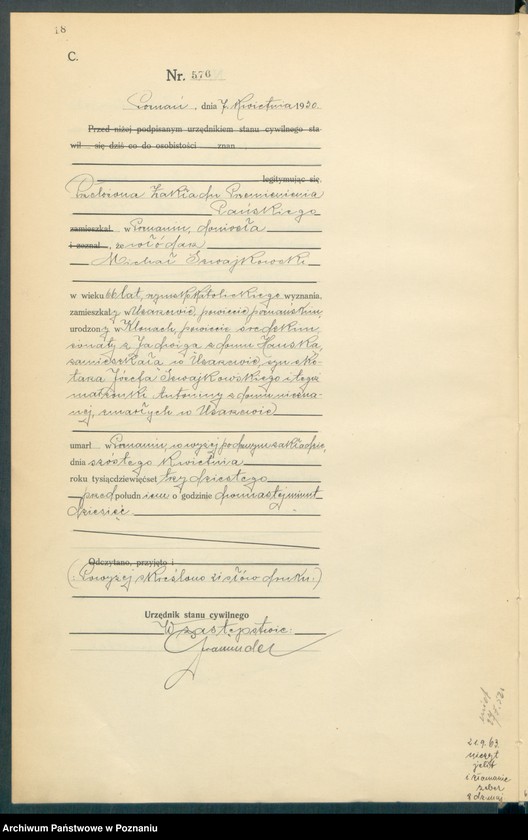 18
C.
Nr. 576
Poznań, dnia 7 Kwietnia 1930.
Przed niżej podpisanym urzędnikiem stanu cywilnego sta
wił się dziś co do osobistości znan
legitymując się
Przełożona Zakładu Przemienienia
Pańskiego
zamieszkał w Poznaniu, doniosła
i zeznał, że włódarz
Michał Szwajkowski
w wieku 66 lat, rzymsk. katolickiego wyznania,
zamieszkały w Uzarzewie, powiecie poznańskim,
urodzony w Klonach, powiecie średzkim,
żonaty z Jadwigą z domu Hauska,
zamieszkała w Uzarzewie, syn
Józefa Szwajkowskiego i tegoż
małżonki Antoniny z domu niezna-
nej, zmarłych w Uzarzewie
umarł w Poznaniu, w wyżej podanym zakładzie,
dnia szóstego Kwietnia
roku tysiącdziewięćset trzydziestego
przed południem o godzinie minut
dziesięć
Odczytano, przyjęto i
(Powyżej skreślono słów druku.)
Urzędnik stanu cywilnego
W zastępstwie:
21.9.63
Archiwum Państwowe w Poznaniu